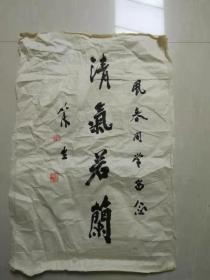 風春同學留念
清氣若蘭